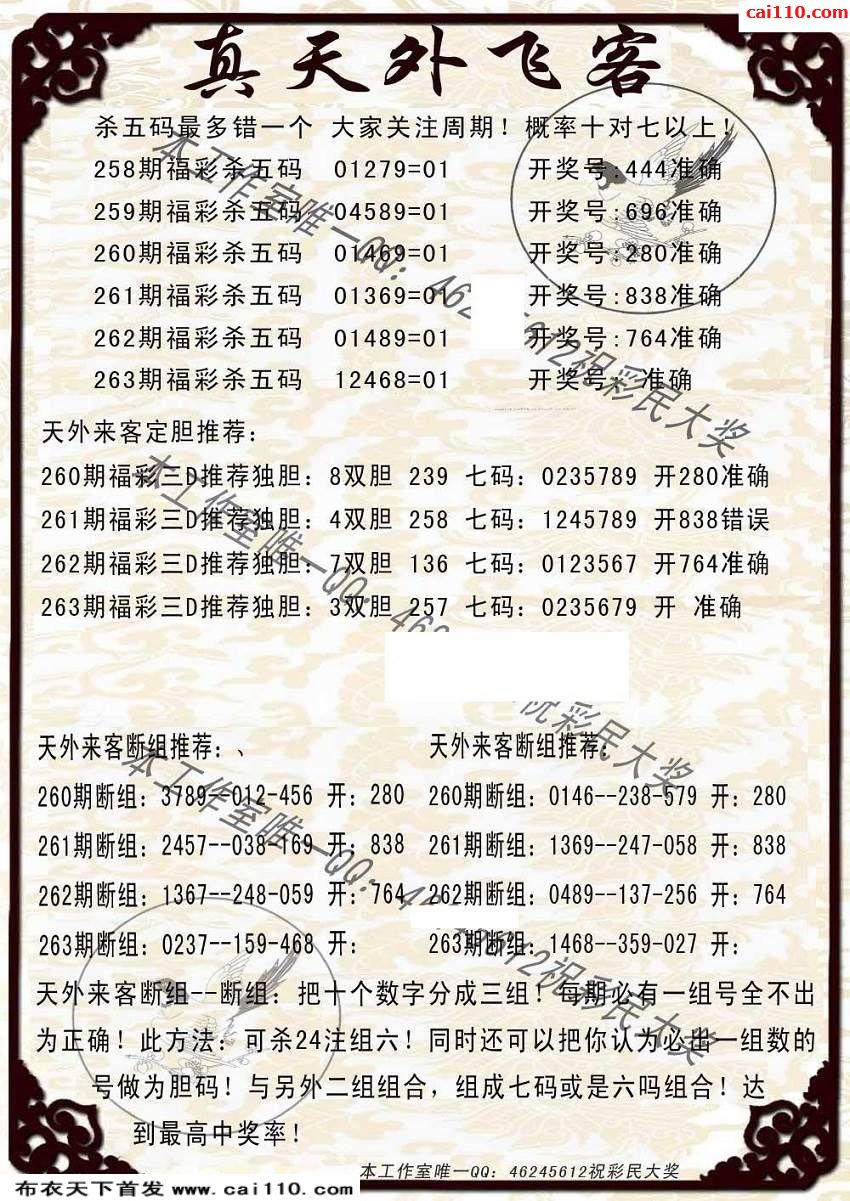 cai110.com
真天外飞客
杀五码最多错一个 大家关注周期！概率十对七以上！
258期福彩杀五码 01279=01 开奖号:444准确
259期福彩杀五码 04589=01 开奖号:696准确
260期福彩杀五码 01469=01 开奖号:280准确
261期福彩杀五码 01369=01 开奖号:838准确
262期福彩杀五码 01489=01 开奖号:764准确
263期福彩杀五码 12468=01 开奖号: 准确
天外来客定胆推荐：
260期福彩三D推荐独胆：8双胆 239 七码：0235789 开280准确
261期福彩三D推荐独胆：4双胆 258 七码：1245789 开838错误
262期福彩三D推荐独胆：7双胆 136 七码：0123567 开764准确
263期福彩三D推荐独胆：3双胆 257 七码：0235679 开 准确
天外来客断组推荐：、 天外来客断组推荐：
260期断组：3789--012-456 开：280 260期断组：0146--238-579 开：280
261期断组：2457--038-169 开：838 261期断组：1369--247-058 开：838
262期断组：1367--248-059 开：764 262期断组：0489--137-256 开：764
263期断组：0237--159-468 开： 263期断组：1468--359-027 开：
天外来客断组--断组：把十个数字分成三组！每期必有一组号全不出
为正确！此方法：可杀24注组六！同时还可以把你认为必出一组数的
号做为胆码！与另外二组组合，组成七码或是六吗组合！达
到最高中奖率！
本工作室唯一QQ：46245612祝彩民大奖
布衣天下首发 www.cai110.com